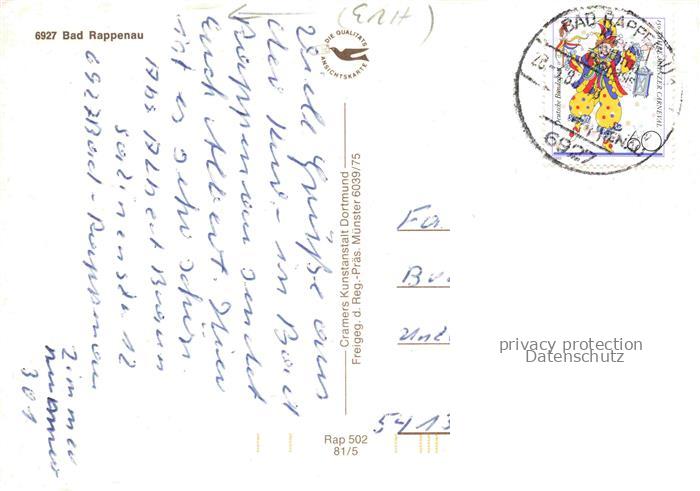 6927 Bad Rappenau
(ERH)
DIE QUALITÄTS
ANSICHTSKARTE
Viele Grüße aus
der Kur - in Bad
Rappenau sendet
Euch Albert. Hier
ist es sehr schön.
Albert Braun
Salinenstr. 12
6927 Bad-Rappenau
Zimmer
nummer
301
Cramers Kunstanstalt Dortmund
Freigeg. d. Reg.-Präs. Münster 6039/75
Rap 502
81/5
BAD RAPPENAU
6927
Deutsche Bundespost
150 JAHRE MAINZER CARNEVAL
60
Fa
5413
privacy protection
Datenschutz